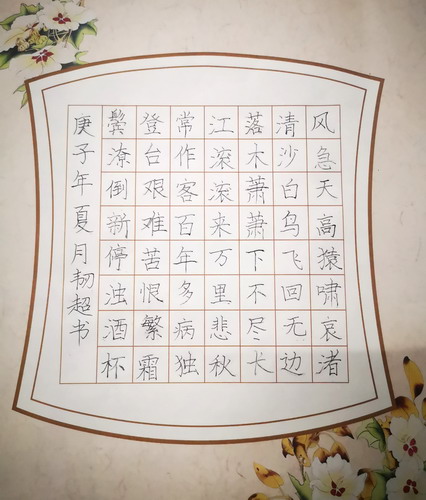 风急天高猿啸哀渚
清沙白鸟飞回无边
落木萧萧下不尽长
江滚滚来万里悲秋
常作客百年多病独
登台艰难苦恨繁霜
鬓潦倒新停浊酒杯
庚子年夏月韧超书